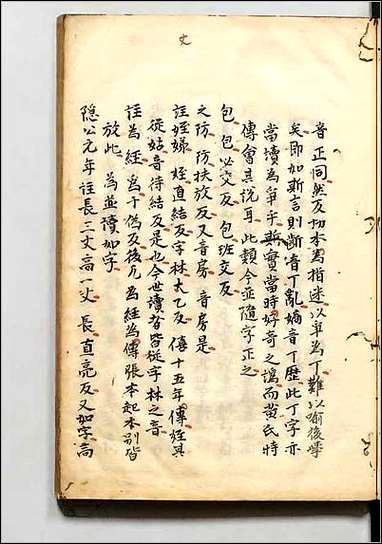 音正同然反切本為指迷以單為丁難以喻後學
矣即如斯言則断音丁亂嫡音丁歴此丁字亦
當讀為爭乎斯實當時好奇之 而黄氏特
傳會其說耳此類今並隨字正之
包 包必交反 包班交反
之防 防扶放反又音房 音房是
註姪娣 姪直結反字林大乙反 僖十五年傳姪其
從姑音待結反是也今世讀者皆從字林之音
註為經 為于偽反後凡為經為傳張本起本别皆
放此 為並讀如字
隱公元年 註長三丈高一丈 長直亮反又如字高